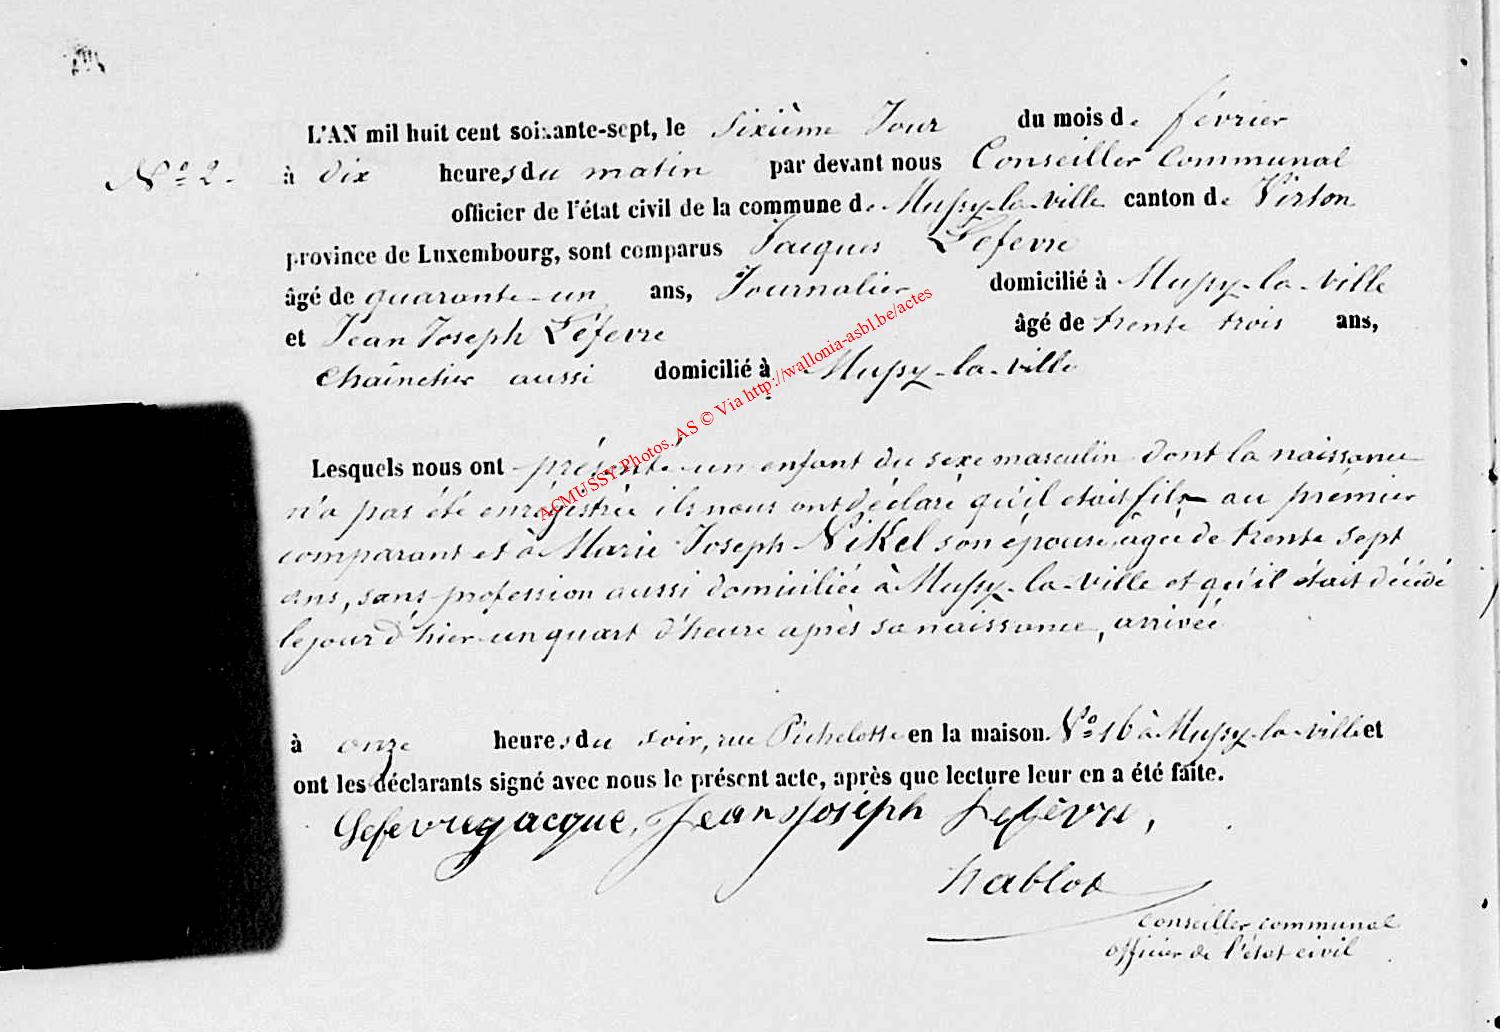 L'AN mil huit cent soixante-sept, le Sixième Jour du mois de février
No 2. à dix heures du matin par devant nous Conseiller Communal
officier de l'état civil de la commune de Mussy-la-ville canton de Virton
province de Luxembourg, sont comparus Jacques Lefevre
âgé de quarante-un ans, Journalier domicilié à Mussy-la-ville
et Jean Joseph Léfevre âgé de trente trois ans,
aussi domicilié à Mussy-la-ville
Lesquels nous ont présenté un enfant du sexe masculin dont la naissance
n'a pas été enrégistrée ils nous ont déclaré qu'il etait fils au prémier
comparant et à Marie Joseph Nikel son épouse, agée de trente sept
ans, sans profession aussi domiciliée à Mussy-la-ville et qu'il était décédé
le jour d'hier un quart d'heure après sa naissance, arrivée
à onze heures du soir, rue Pichelotte en la maison No 16 à Mussy-la-ville et
ont les déclarants signé avec nous le présent acte, après que lecture leur en a été faite.
Lefevre jacque, Jean Joseph Lefèvre,
hablot
Conseiller communal
officier de l'état civil
ACMUSSY Photos. AS © Via http://wallonia-asbl.be/actes